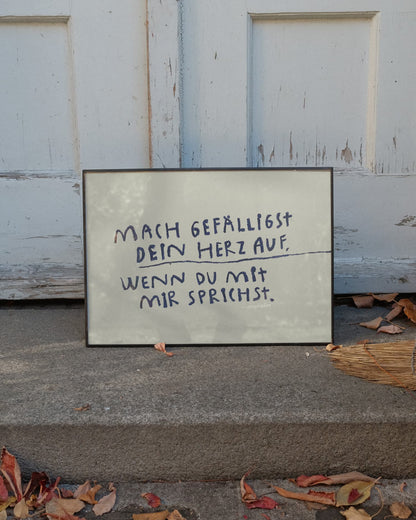 MACH GEFÄLLIGST
DEIN HERZ AUF,
WENN DU MIT
MIR SPRICHST.